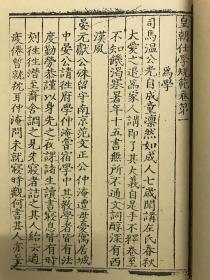 皇朝仕學規範卷第一
為學
司馬溫公光自成童凛然如成人七歲聞講左氏春秋
大愛之退為家人講即了其大義自是手不釋卷至
不知飢渴寒暑年十五書無所不通文詞醇深有西
漢風
晏元獻公殊留守南京范文正公仲淹遭母憂寓居城
中晏公請住府學仲淹嘗宿學其教學者皆有法
度勤勞恭謹以身先之夜課諸生讀書寢食皆有時
刻往往潛至齋舍詗之見先寢者詰之其人紿云適
疲倦暫就枕耳仲淹問未就寢時觀何書其人亦妄